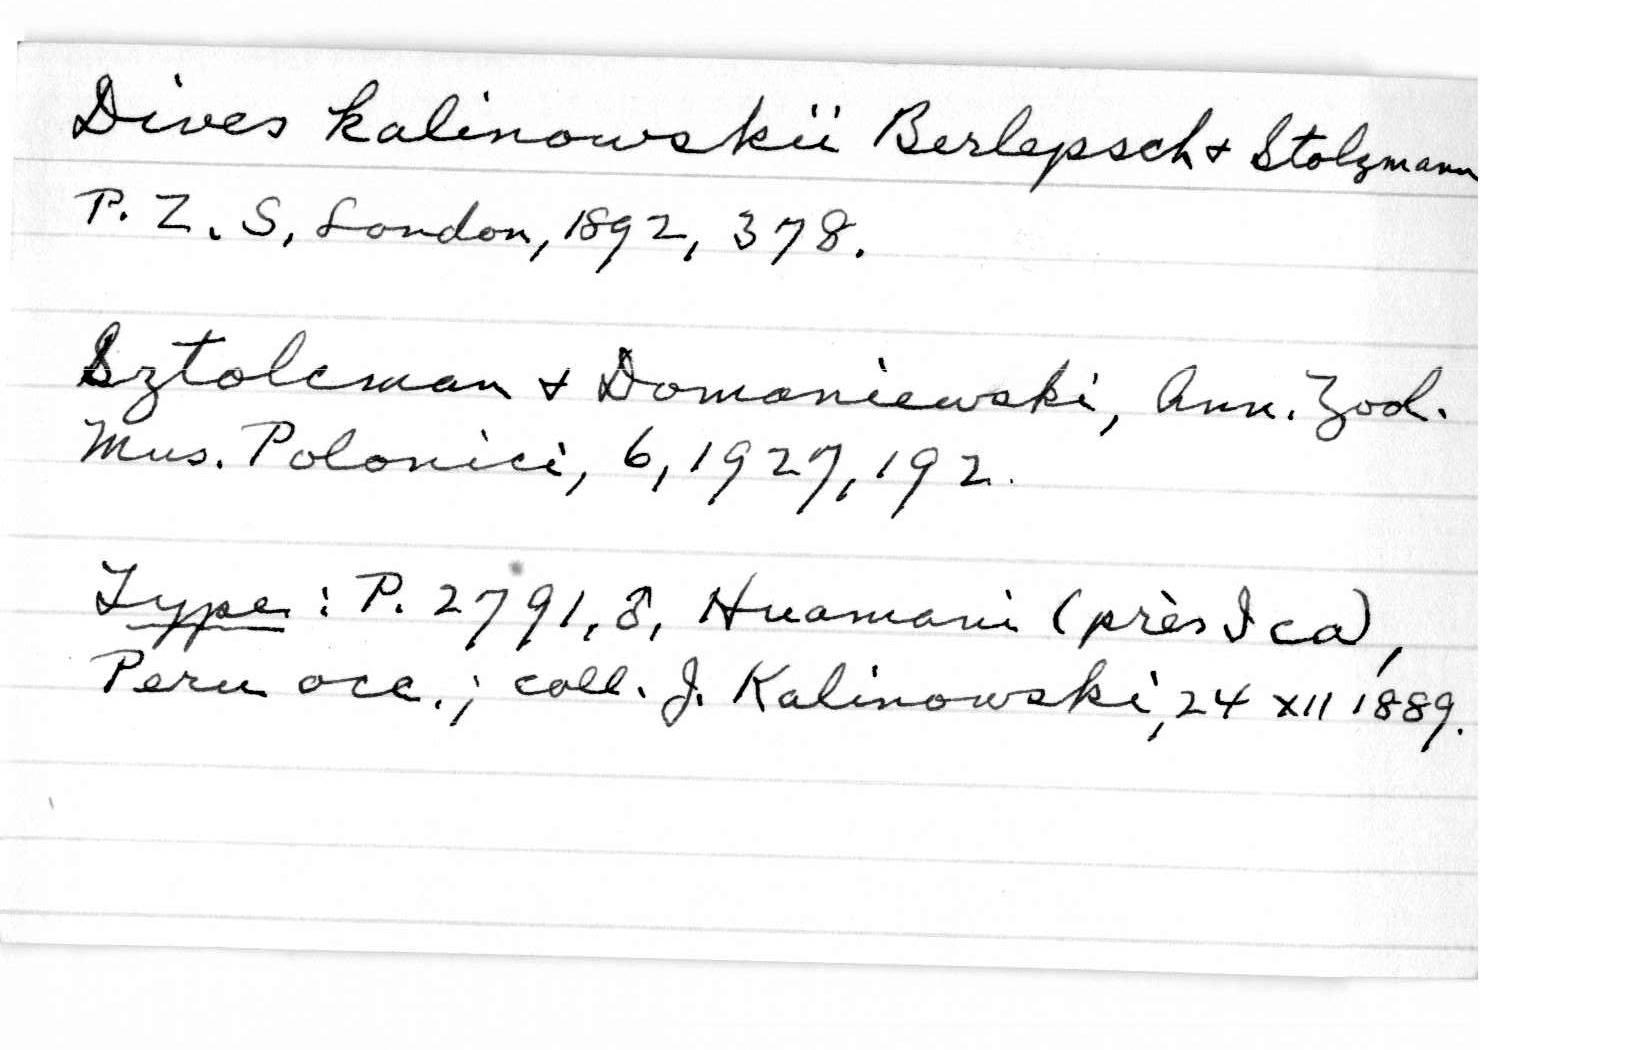 Dives kalinowskii Berlepsch & Stolzmann
P. Z. S, London, 1892, 378.
Sztolcman & Domaniewski, Ann. Zool.
Mus. Polonici, 6, 1927, 192.
Type : P. 2791, ♂, Huamani (près Ica),
Peru occ.; coll. J. Kalinowski, 24 XII 1889.